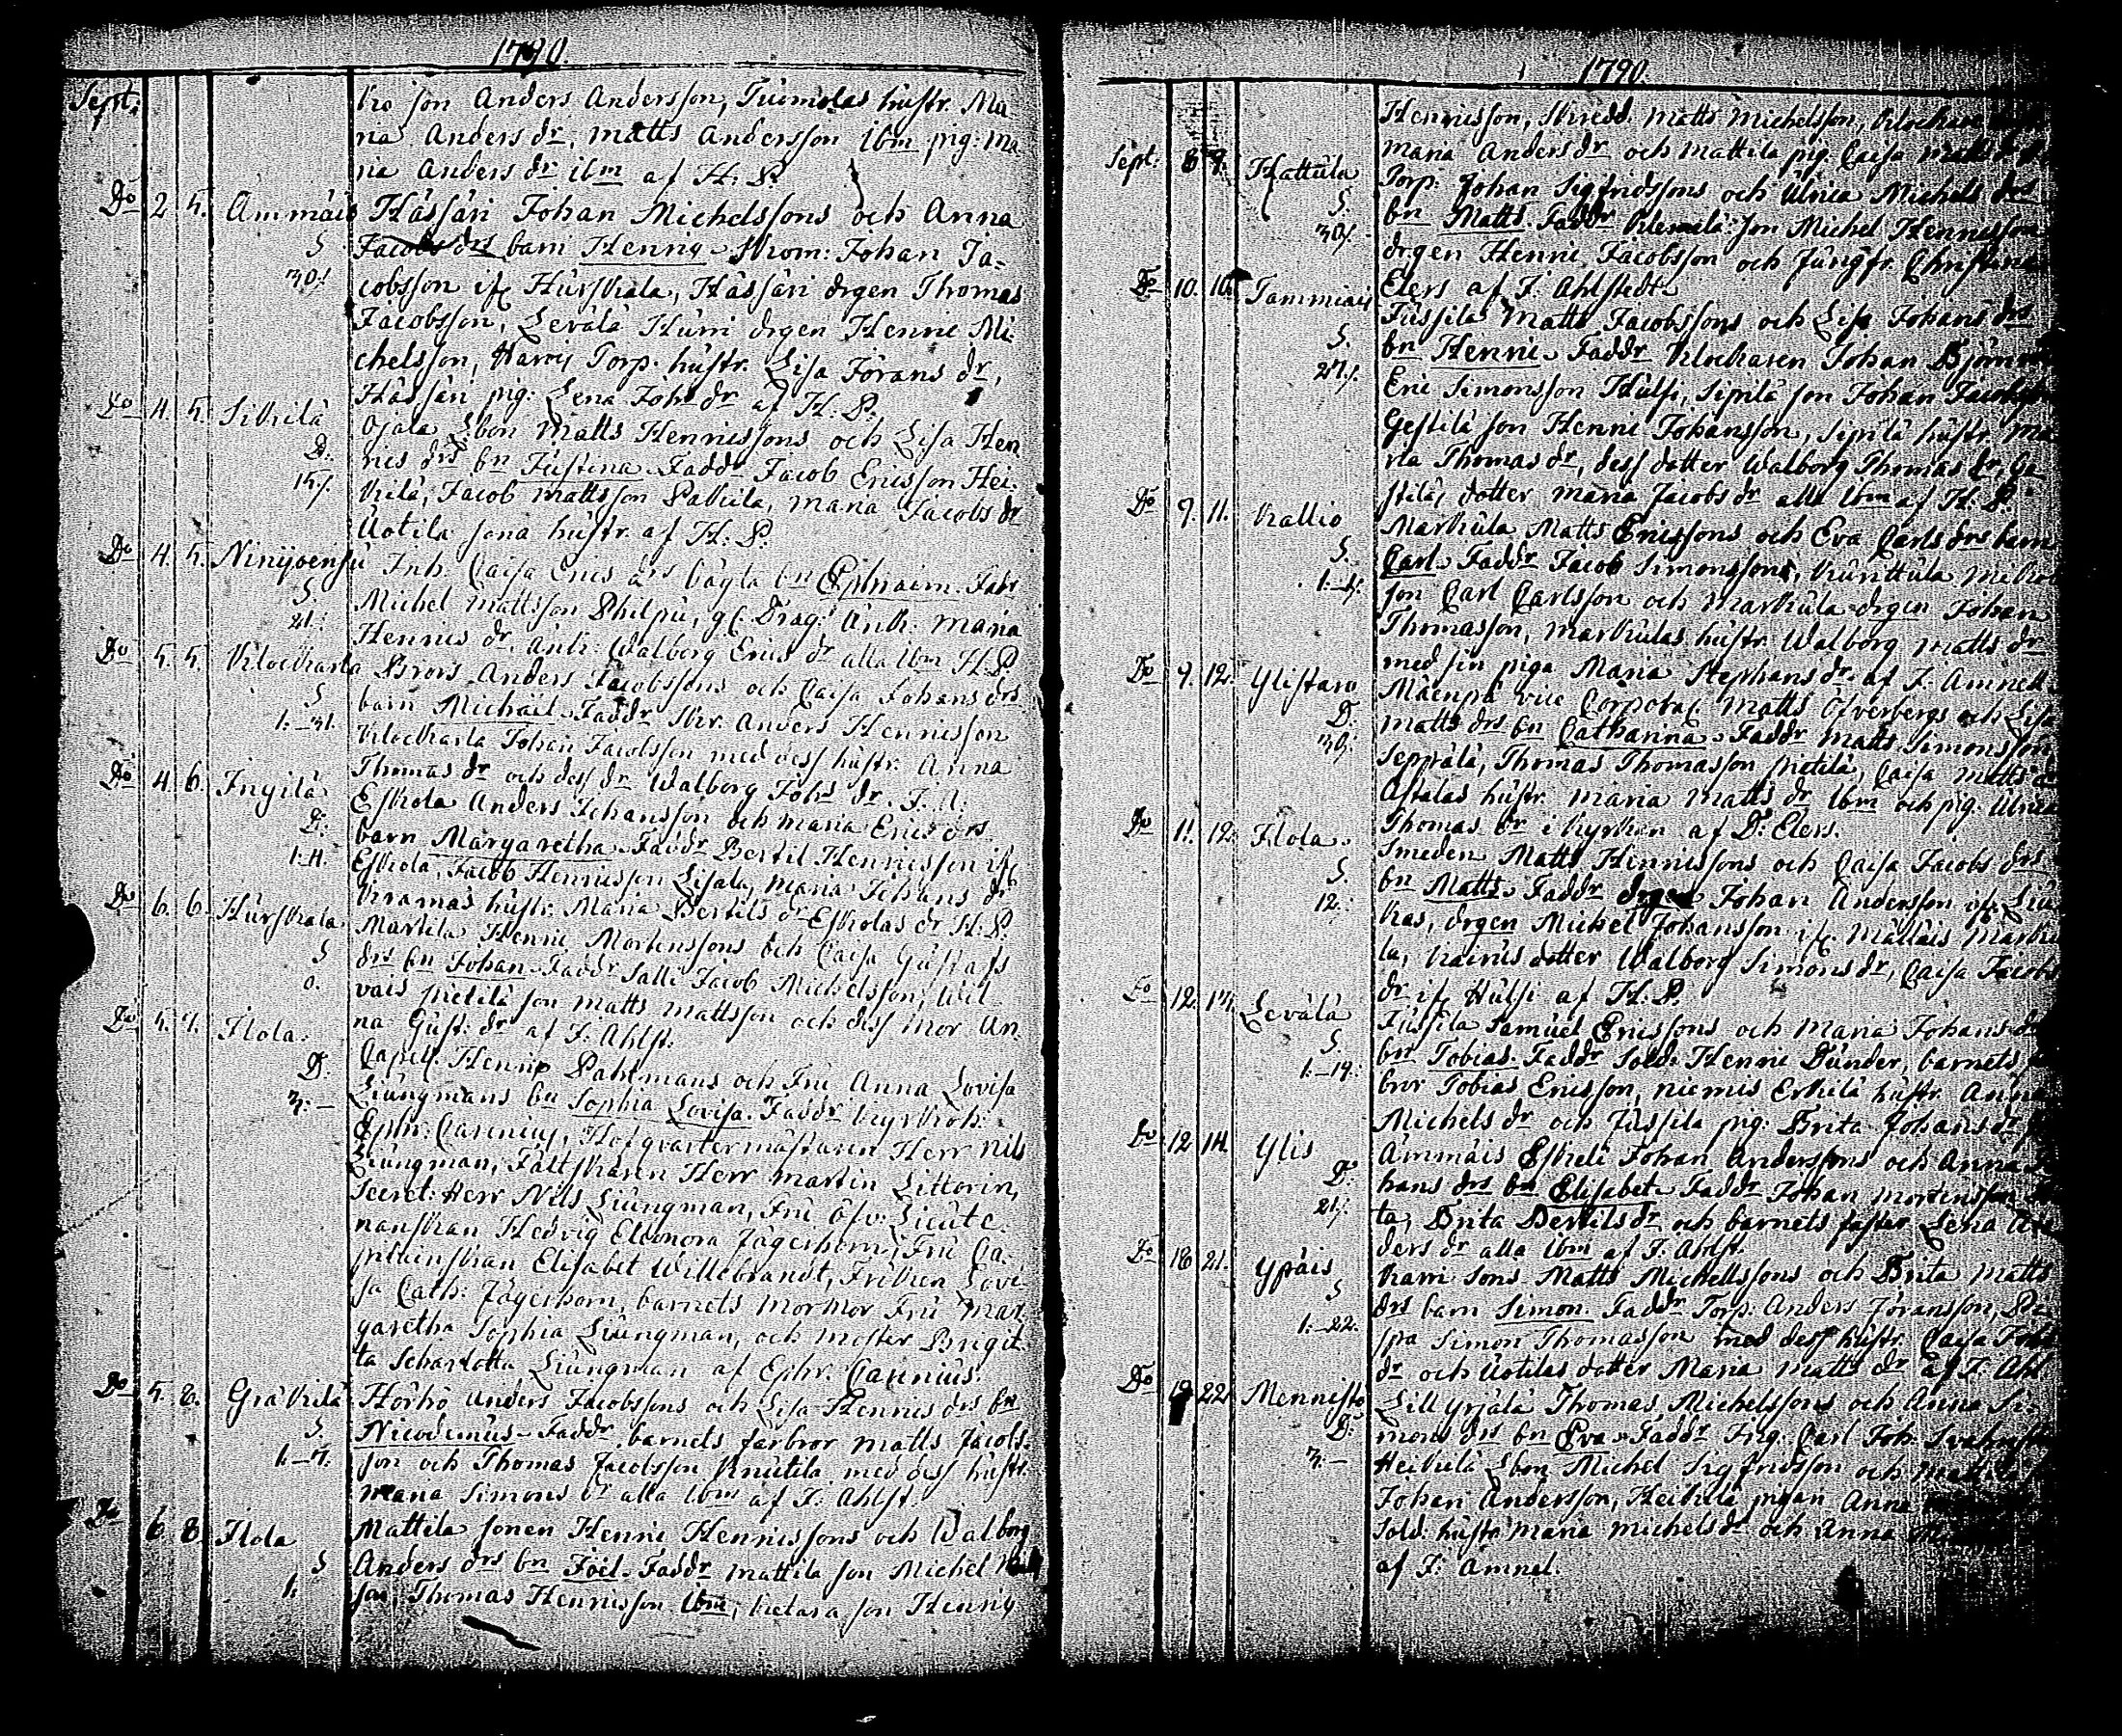 1790.
Sept. kio son Anders Andersson, Tuimolas hustr. Ma-
ria Anders dr, Matts Andersson ibm pig: Ma
ria Anders dr ibm af H: P.
Do 2. 5. Ammäis Hässäri Johan Michelssons och Anna
S. Jacobs drs barn Henric. Johan Ja-
30/. cobsson if Hurskala, Hässäri drgen Thomas
Jacobsson, Levälä Hurri drgen Henric Mi-
chelsson, Harris Torp. hustr. Lisa Jörans dr,
Hässäri pig: Lena Joh: dr af H: P:
Do 4. 5. Sikilä Ojala Matts Henricssons och Lisa Hen
D. rics drs bn Justina. Faddr Jacob Ericsson Hei-
15/. kilä, Jacob Mattsson Pakkila, Maria Jacobs dr
Uotila sona hustr. af H: P.
Do 4. 5. Ninijoensu Inh. Caisa Erics drs oägta bn Ephraim. Fadr
S. Michel Mattsson Philpu, gl: Drag: Änk: Maria
21: Henrics dr. änk: Walborg Erics dr alla ibm H. P.
Do 5. 5. Klockarla Brors Anders Jacobssons och Caisa Johans drs
S barn Michaël. Faddr Skr. Anders Henricsson
1.-31. Klockarla Johan Jacobsson med dess hustr. Anna
Thomas dr och dess dr Walborg Johs dr. J. A:
Do 4. 6. Ingilä Eskola Anders Johansson och Maria Erics drs
D: barn Margaretha. Faddr Bertil Henricsson if
1-4. Eskola, Jacob Henricsson Lisala, Maria Johans dr
Kramas hustr. Maria Bertils dr Eskolas dr H: P.
Do 6. 6. Hurskala Martila Henric Mortenssons och Caisa Gustafs
S drs bn Johan. Faddr Salli Jacob Michelsson, Wil
0. vais pietilä son Matts Mattsson och dess mor An
na Gust: dr af J: Ahlst.
Do 5. 7. Flola. Capell. Henric Pahlmans och Fru Anna Lovisa
D: Liungmans bn Sophia Lovisa. Faddr kyrkoh:
3: - Ephr: Carenius, Hofqvartermästaren Herr Nils
Liungman, Fältskären Herr Martin Littorin,
Secret: Herr Nils Liungman, Fru öfv: Lieute-
nanskan Hedvig Eleonora Jägerhorn, Fru Ca-
ptainskan Elisabet Willebrandt, Fröken Lovi-
sa Cath: Jägerhorn, barnets mormor Fru Mar
garetha Sophia Liungman, och moster Brigit
ta Scharlotta Liungman af Ephr. Carenius.
Do 5. 8. Gräkilä Hörkö Anders Jacobssons och Lisa Henrics drs bn
S. Nicodemus. Faddr barnets farbror Matts Jacobs-
1.-7. son och Thomas Jacobsson Knutila med dess hustr.
Maria Simons dr alla ibm af J: Ahlst.
Do 6. 8. Flola Mattila sonen Henric Henricssons och Walborg
S Anders drs bn Joël. Faddr Mattila son Michel
1. son, Thomas Henricsson ibm, kietara son Henric
1790
Henricsson, Skredd. Matts Michelsson, Klockare
Maria Anders dr och Mattila pig. Caisa Matts dr
Sept: 8 9. Hattula Torp: Johan Sigfridssons och Ulrica Michels drs
S. bn Matts. Faddr Klemelä son Michel Henricsson
30/. drgen Henric Jacobsson och Jungfr. Christina
Elers af J. Ahlstedt.
Do 10. 10. Tammiais Jussila Matts Jacobssons och Lisa Johans drs
S. bn Henric. Faddr Klockaren Johan Björn
27/. Eric Simonsson Hulsi, Sipilä son Johan Jacobsson
Gestilä son Henric Johansson, Sipilä hustr. Ma
ria Thomas dr, dess dotter Walborg Thomas dr Ge
stiläs dotter Maria Jacobs dr alla ibm af H: P:
Do 9. 11. Kallio Markula Matts Ericssons och Eva Carls drs barn
S. Carl. Faddr Jacob Simonssons, Kunttula Micko
1.-4. son Carl Carlsson och Markula drgen Johan
Thomasson, Markulas hustr. Walborg Matts dr
med sin piga Maria Stephans dr. af J: Amnell.
Do 9. 12. Ylistaro Mäenpä vice Corporal Matts Öfverbergs och Lisa
D: Matts drs bn Catharina. Faddr Matts Simonsson
30/: Seppälä, Thomas Thomasson pietilä, Caisa Matts dr
Astalas hustr. Maria Matts dr ibm och pig. Ulrica
Thomas dr i kyrkan af D: Elers.
Do 11. 12. Flola. Smeden Matts Henricssons och Caisa Jacobs drs
S. bn Matts. Faddr drgen Johan Andersson if Liu
12: kas, drgen Michel Johansson if. Mälläis Marku
la, Kairus dotter Walborg Simons dr, Caisa Jacobs
dr if Hulsi af H: P.
Do 12. 13 Levälä Jussila Samuel Ericssons och Maria Johans drs
S bn Tobias. Faddr Sold. Henric Dunder, barnets
1.-14: bror Tobias Ericsson, Niemis Erkilä hustr. Anna
Michels dr och Jussila pig: Brita Johans dr
Do 12 14. Ylis Ämmäis Eskeli Johan Anderssons och Anna
D: hans drs bn Elisabet. Faddr Johan Mortensson
21/: ta, Brita Bertils dr och barnets faster Lena An
ders dr alla ibm af J: Ahlst.
Do 18 21. Ypäis Karri sons Matts Michellssons och Brita Matts
S drs barn Simon. Faddr Torp: Anders Jöransson,
1.-22. Simon Thomasson med dess hustr. Caisa Joh:
dr och Uotilas dotter Maria Matts dr af J: Ahl
Do 19 22. Mennisto Lill yrjälä Thomas Michelssons och Anna Si-
D: mons drs bn Eva. Faddr Carl Joh:
3:- Heikilä Michel Sigfridsson och Mattila
Johan Andersson, Heikilä pigan Anna
Sold: hustr Maria Michels dr och Anna
af J: Amnel.